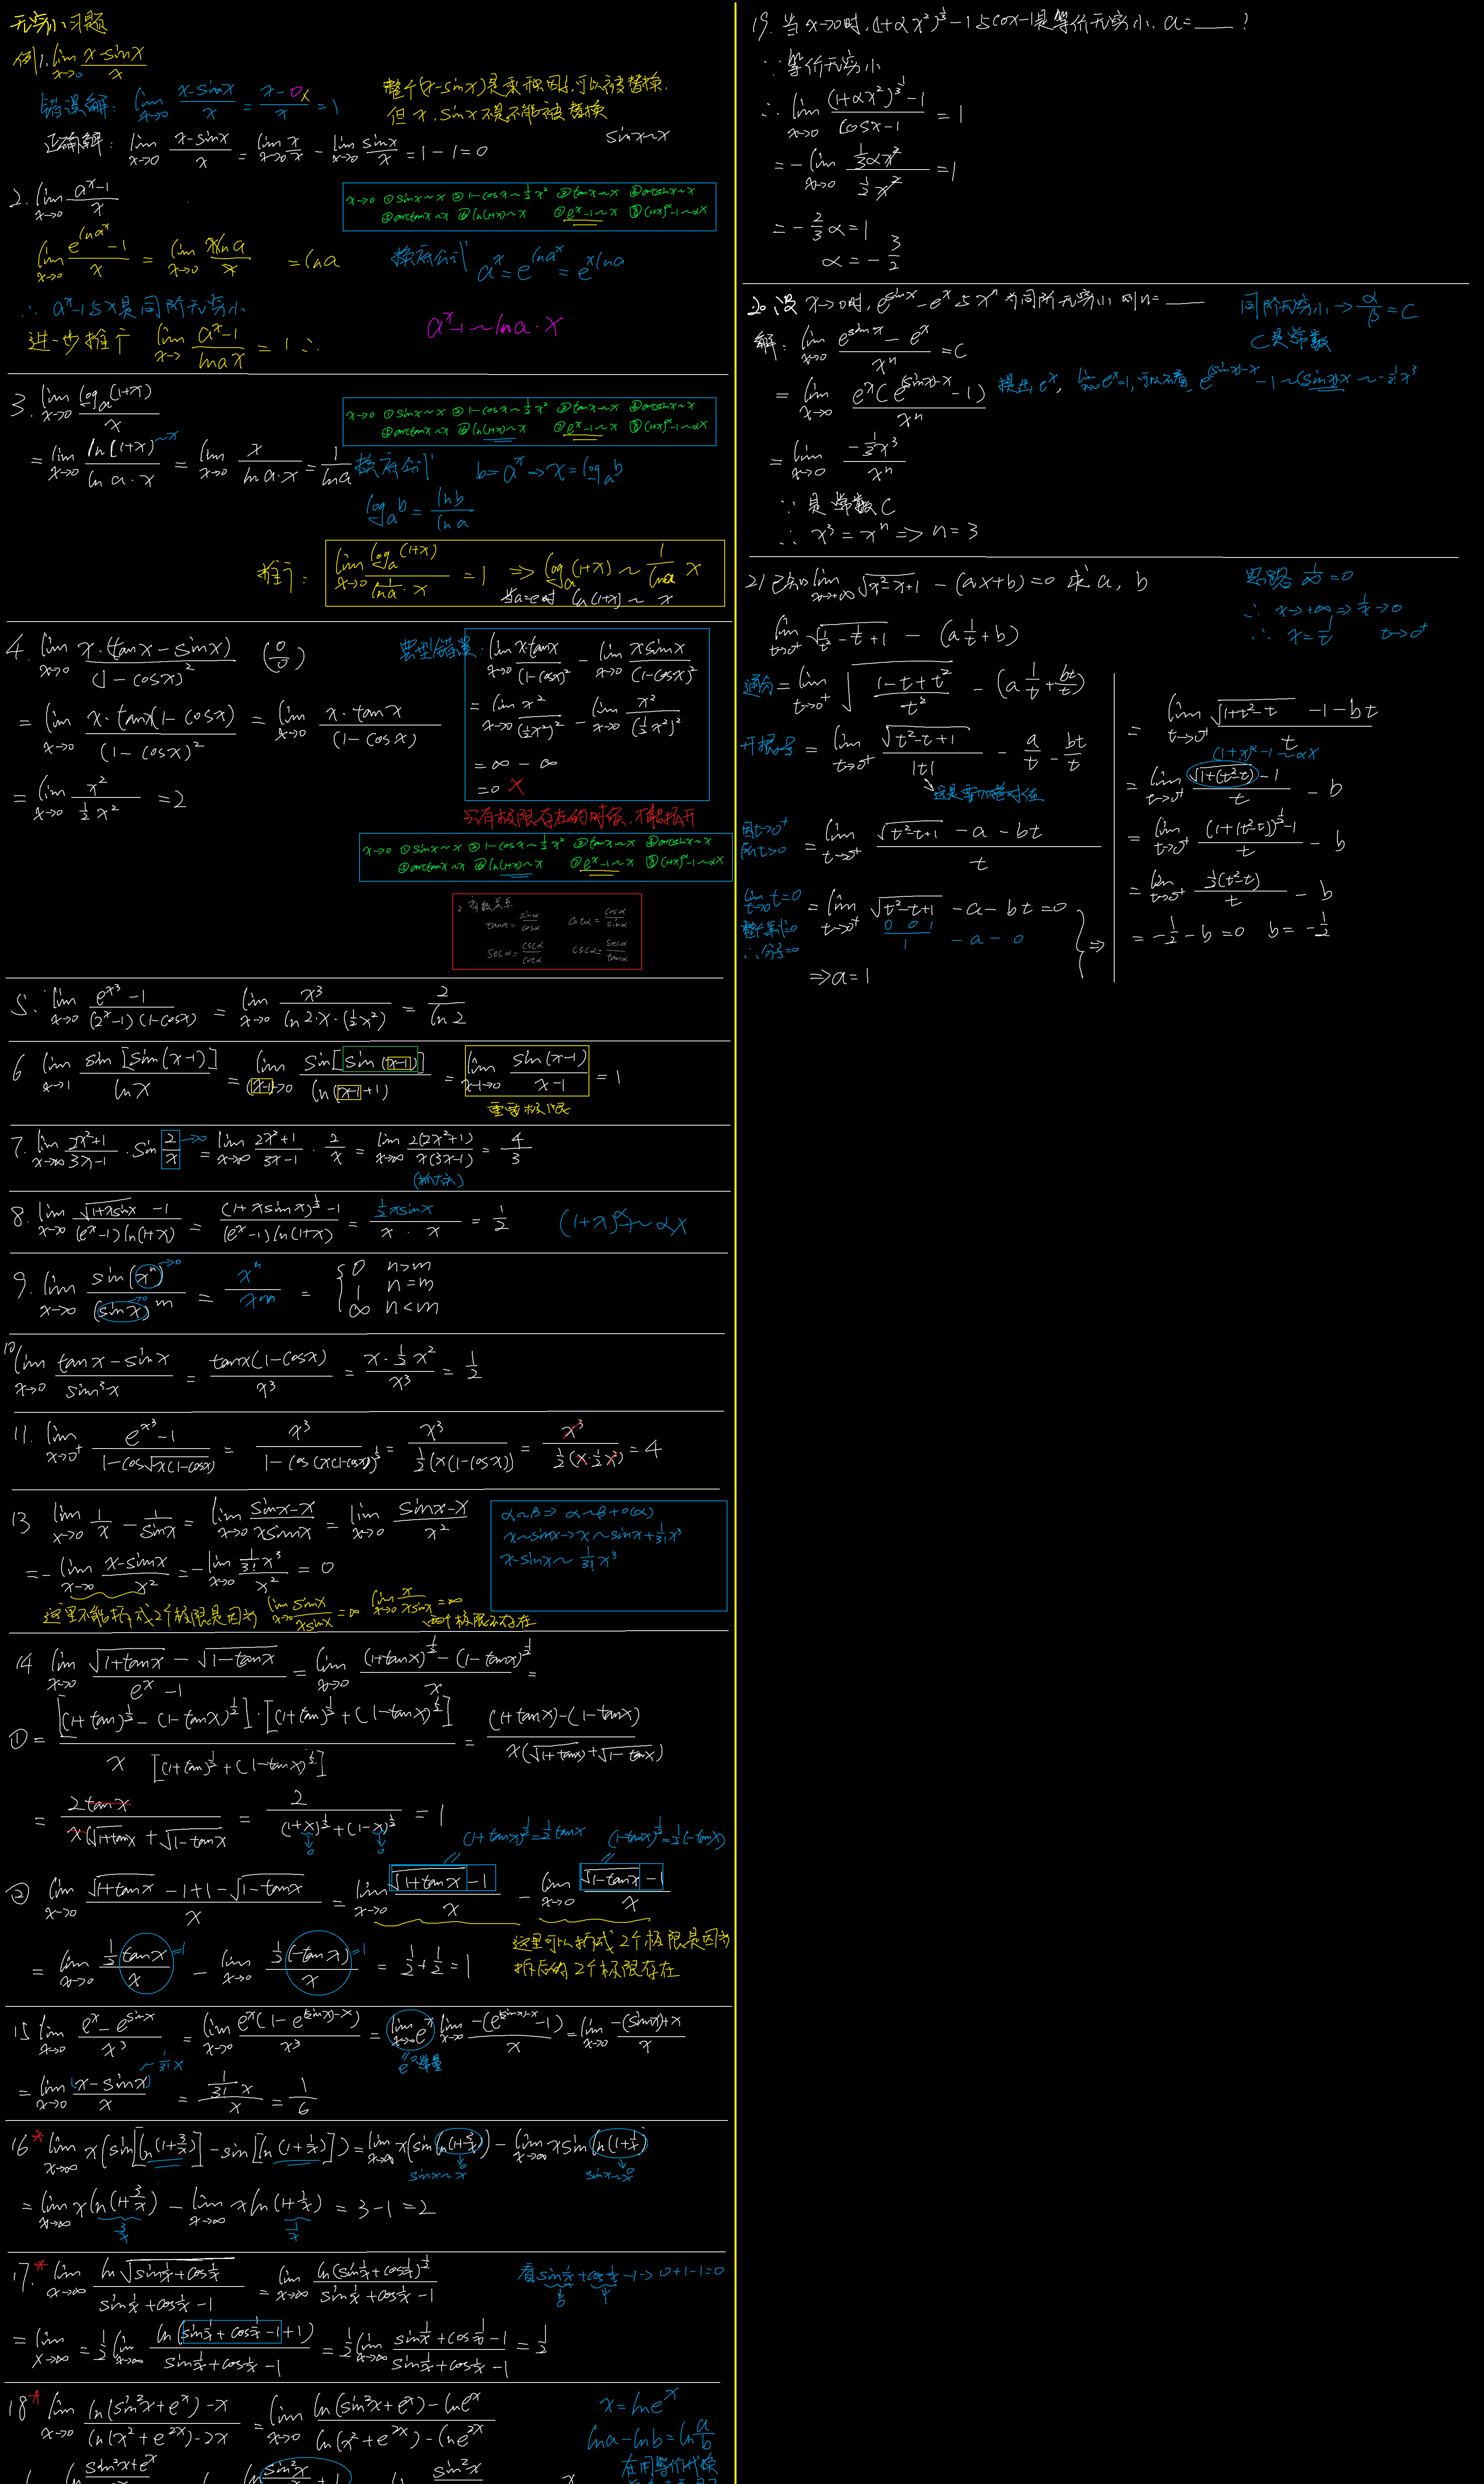 无穷小习题
例1. lim x→0 (x-sinx)/x
错误解: lim x→0 (x-sinx)/x = (x-0x)/x = 1
整个(x-sinx)是乘积因子,可以被替换.
但 x, sinx 不是,不能被替换
正确解: lim x→0 (x-sinx)/x = lim x→0 x/x - lim x→0 sinx/x = 1-1=0
sinx~x
2. lim x→0 (a^x-1)/x
x→0 ①sinx~x ②1-cosx~½x² ③tanx~x ④arcsinx~x
⑤arctanx~x ⑥ln(1+x)~x ⑦e^x-1~x ⑧(1+x)^α-1~αx
lim x→0 (e^(lna^x)-1)/x = lim x→0 xlna/x = lna
换底公式 a^x = e^(lna^x) = e^(xlna)
∴ a^x-1与x是同阶无穷小
进一步推广 lim x→ (a^x-1)/(lna x) = 1 ∴
a^x-1~lna·x
3. lim x→0 log_a(1+x)/x
x→0 ①sinx~x ②1-cosx~½x² ③tanx~x ④arcsinx~x
⑤arctanx~x ⑥ln(1+x)~x ⑦e^x-1~x ⑧(1+x)^α-1~αx
= lim x→0 ln(1+x)~x/(lna·x) = lim x→0 x/(lna·x) = 1/lna
换底公式 b=a^x → x=log_a b
log_a b = lnb/lna
推广: lim x→0 log_a(1+x)/(1/lna · x) = 1 ⇒ log_a(1+x) ~ 1/lna x
当a=e时 ln(1+x) ~ x
4. lim x→0 x·(tanx-sinx)/(1-cosx)² (0/0)
= lim x→0 x·tanx(1-cosx)/(1-cosx)² = lim x→0 x·tanx/(1-cosx)
= lim x→0 x²/(½x²) = 2
典型错误: lim x→0 x·tanx/(1-cosx)² - lim x→0 xsinx/(1-cosx)²
= lim x→0 x²/(½x²)² - lim x→0 x²/(½x²)²
= ∞ - ∞
= 0 ×
只有极限存在的时候,才能拆开
x→0 ①sinx~x ②1-cosx~½x² ③tanx~x ④arcsinx~x
⑤arctanx~x ⑥ln(1+x)~x ⑦e^x-1~x ⑧(1+x)^α-1~αx
2 商数关系
tanα = sinα/cosα cotα = cosα/sinα
secα = cscα/cotα cscα = secα/tanα
5. lim x→0 (e^x³-1)/((2^x-1)(1-cosx)) = lim x→0 x³/(ln2·x·(½x²)) = 2/ln2
6. lim x→1 sin[sin(x-1)]/lnx = lim (x-1)→0 sin[sin(x-1)]/ln(x-1+1) = lim x-1→0 sin(x-1)/(x-1) = 1
重要极限
7. lim x→∞ (2x²+1)/(3x-1)·sin 2/x →0 = lim x→∞ (2x²+1)/(3x-1)·2/x = lim x→∞ 2(2x²+1)/(x(3x-1)) = 4/3
(抓大头)
8. lim x→0 (√(1+xsinx)-1)/((e^x-1)ln(1+x)) = ((1+xsinx)^½-1)/((e^x-1)ln(1+x)) = ½xsinx/(x·x) = ½ (1+x)^α-1~αx
9. lim x→0 sin(x^n)→0/(sinx)^m = x^n/x^m = { 0 n>m
1 n=m
∞ n<m
10 lim x→0 (tanx-sinx)/sin³x = tanx(1-cosx)/x³ = x·½x²/x³ = ½
11. lim x→0⁺ (e^x³-1)/(1-cos√(x(1-cosx))) = x³/(1-cos(x(1-cosx))^½) = x³/(½(x(1-cosx))) = x³/(½(x·½x²)) = 4
13 lim x→0 1/x - 1/sinx = lim x→0 (sinx-x)/(xsinx) = lim x→0 (sinx-x)/x²
= -lim x→0 (x-sinx)/x² = -lim x→0 (1/3! x³)/x² = 0
α~β ⇒ α~β+o(α)
x~sinx→x~sinx+1/3! x³
x-sinx~1/3! x³
这里不能拆成2个极限是因为 lim x→0 sinx/(xsinx) = ∞ lim x→0 x/(xsinx) = ∞ 两个极限不存在
14 lim x→0 (√(1+tanx)-√(1-tanx))/(e^x-1) = lim x→0 ((1+tanx)^½-(1-tanx)^½)/x =
① = [(1+tan)^½-(1-tanx)^½]·[(1+tan)^½+(1-tanx)^½]/(x[(1+tan)^½+(1-tanx)^½]) = ((1+tanx)-(1-tanx))/(x(√(1+tanx)+√(1-tanx)))
= 2tanx/(x(√(1+tanx)+√(1-tanx) = 2/((1+x)^½+(1-x)^½) = 1
0 0
(1+tanx)^½=½tanx (1-tanx)^½=½(-tanx)
② lim x→0 (√(1+tanx)-1+1-√(1-tanx))/x = lim x→0 (√(1+tanx)-1)/x - lim x→0 (√(1-tanx)-1)/x
这里可以拆成2个极限是因为
拆后的2个极限存在
= lim x→0 ½tanx/x =1 - lim x→0 ½(-tanx)/x =1 = ½+½=1
15 lim x→0 (e^x-e^sinx)/x³ = lim x→0 e^x(1-e^((sinx)-x))/x³ = lim x→0 e^x lim x→0 -(e^((sinx)-x)-1)/x = lim x→0 (-(sinx)+x)/x
e^0常量
= lim x→0 (x-sinx)/x ~1/3! x = (1/3! x)/x = 1/6
16* lim x→∞ x(sin[ln(1+3/x)]-sin[ln(1+1/x)]) = lim x→∞ x(sin ln(1+3/x)) - lim x→∞ xsin ln(1+1/x)
sinx~x sinx~x
= lim x→∞ xln(1+3/x) - lim x→∞ xln(1+1/x) = 3-1=2
3/x 1/x
17.* lim x→∞ ln√(sin1/x+cos1/x)/(sin1/x+cos1/x-1) = lim x→∞ ln(sin1/x+cos1/x)^½/(sin1/x+cos1/x-1)
看sin1/x+cos1/x-1→0+1-1=0
= lim x→∞ = ½ lim x→∞ ln(sin1/x+cos1/x-1+1)/(sin1/x+cos1/x-1) = ½ lim x→∞ (sin1/x+cos1/x-1)/(sin1/x+cos1/x-1) = ½
18* lim x→0 (ln(sin²x+e^x)-x)/(ln(x²+e^2x)-2x) = lim x→0 (ln(sin²x+e^x)-lne^x)/(ln(x²+e^2x)-lne^2x)
x=lne^x
lna-lnb=ln a/b
在用等价代换
19. 当x→0时,(1+αx²)^⅓-1与cosx-1是等价无穷小, a=___?
∵等价无穷小
∴ lim x→0 ((1+αx²)^⅓-1)/(cosx-1) = 1
= -lim x→0 ⅓αx²/(½x²) = 1
= -⅔α=1
α=-3/2
20.设x→0时, e^sinx-e^x与x^n为同阶无穷小 则n=___
同阶无穷小→α/β=C
C是常数
解: lim x→0 (e^sinx-e^x)/x^n = C
= lim x→0 e^x(e^((sinx)-x)-1)/x^n
提出e^x, lim x→0 e^x=1,可以不看, e^((sinx)-x)-1~(sinx)-x~-1/3! x³
= lim x→0 (-1/3! x³)/x^n
∵是常数C
∴ x³=x^n ⇒ n=3
21 已知 lim x→+∞ √(x²-x+1)-(ax+b)=0 求a, b
思路 1/∞=0
∴ x→+∞⇒1/x→0
∴ x=1/t t→0⁺
lim t→0⁺ √(1/t²-1/t+1)-(a1/t+b)
通分 = lim t→0⁺ √((1-t+t²)/t²) - (a1/t+bt/t)
开根号 = lim t→0⁺ √(t²-t+1)/|t| - a/t - bt/t
这是要加绝对值
因t→0⁺
所t>0
= lim t→0⁺ (√(t²-t+1)-a-bt)/t
lim t→0 t=0
整个第式=0
∴分子=0
= lim t→0⁺ √(t²-t+1)-a-bt=0
0 0 1
1 -a-0
⇒a=1
⇒
= lim t→0⁺ (√(1+t²-t)-1-bt)/t
(1+x)^α-1~αx
= lim t→0⁺ (√(1+(t²-t))-1)/t - b
= lim t→0⁺ ((1+(t²-t))^½-1)/t - b
= lim t→0⁺ ½(t²-t)/t - b
= -½-b=0 b=-½